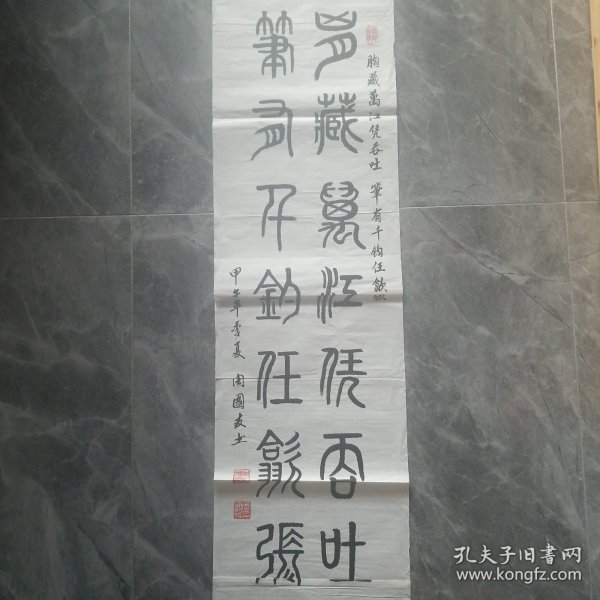 胸藏萬江凭吞吐 筆有千鈞任歙
胷藏萬江凭吞吐
筆有千鈞任歙張
甲午年季夏 周國友书
孔夫子旧书网
www.kongfz.com